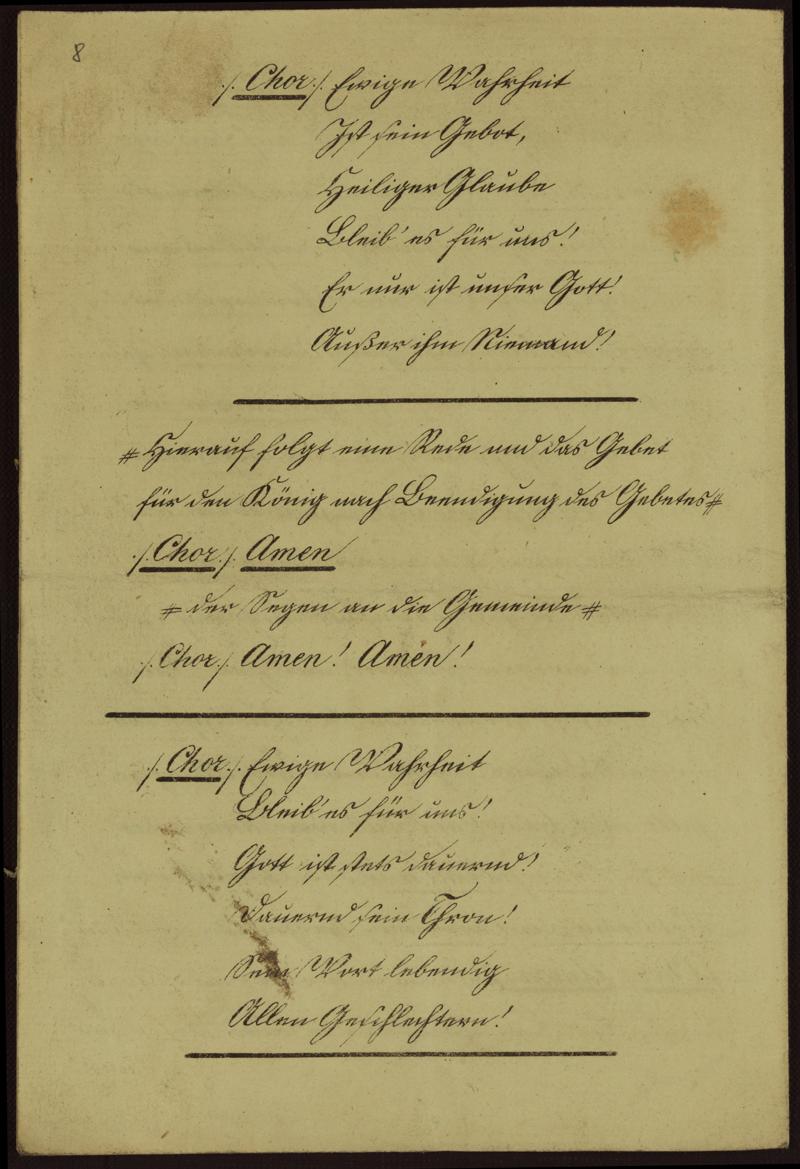 8
./. Chor ./. Ewige Wahrheit
Ist sein Gebot,
Heiliger Glaube
Bleib' es für uns!
Er nur ist unser Gott!
Außer ihm Niemand!
# Hierauf folgt eine Rede und das Gebet
für den König nach Beendigung des Gebetes #
./. Chor ./. Amen
# der Segen an die Gemeinde #
./. Chor ./. Amen! Amen!
./. Chor ./. Ewige Wahrheit
Bleib' es für uns!
Gott ist stets dauernd!
Dauernd sein Thron!
Sein Wort lebendig
Allen Geschlechtern!